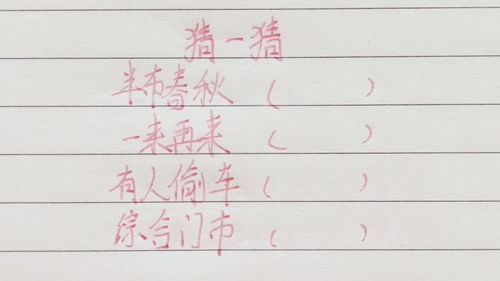 猜一猜
半布春秋 ( )
一来再来 ( )
有人偷车 ( )
综合门市 ( )